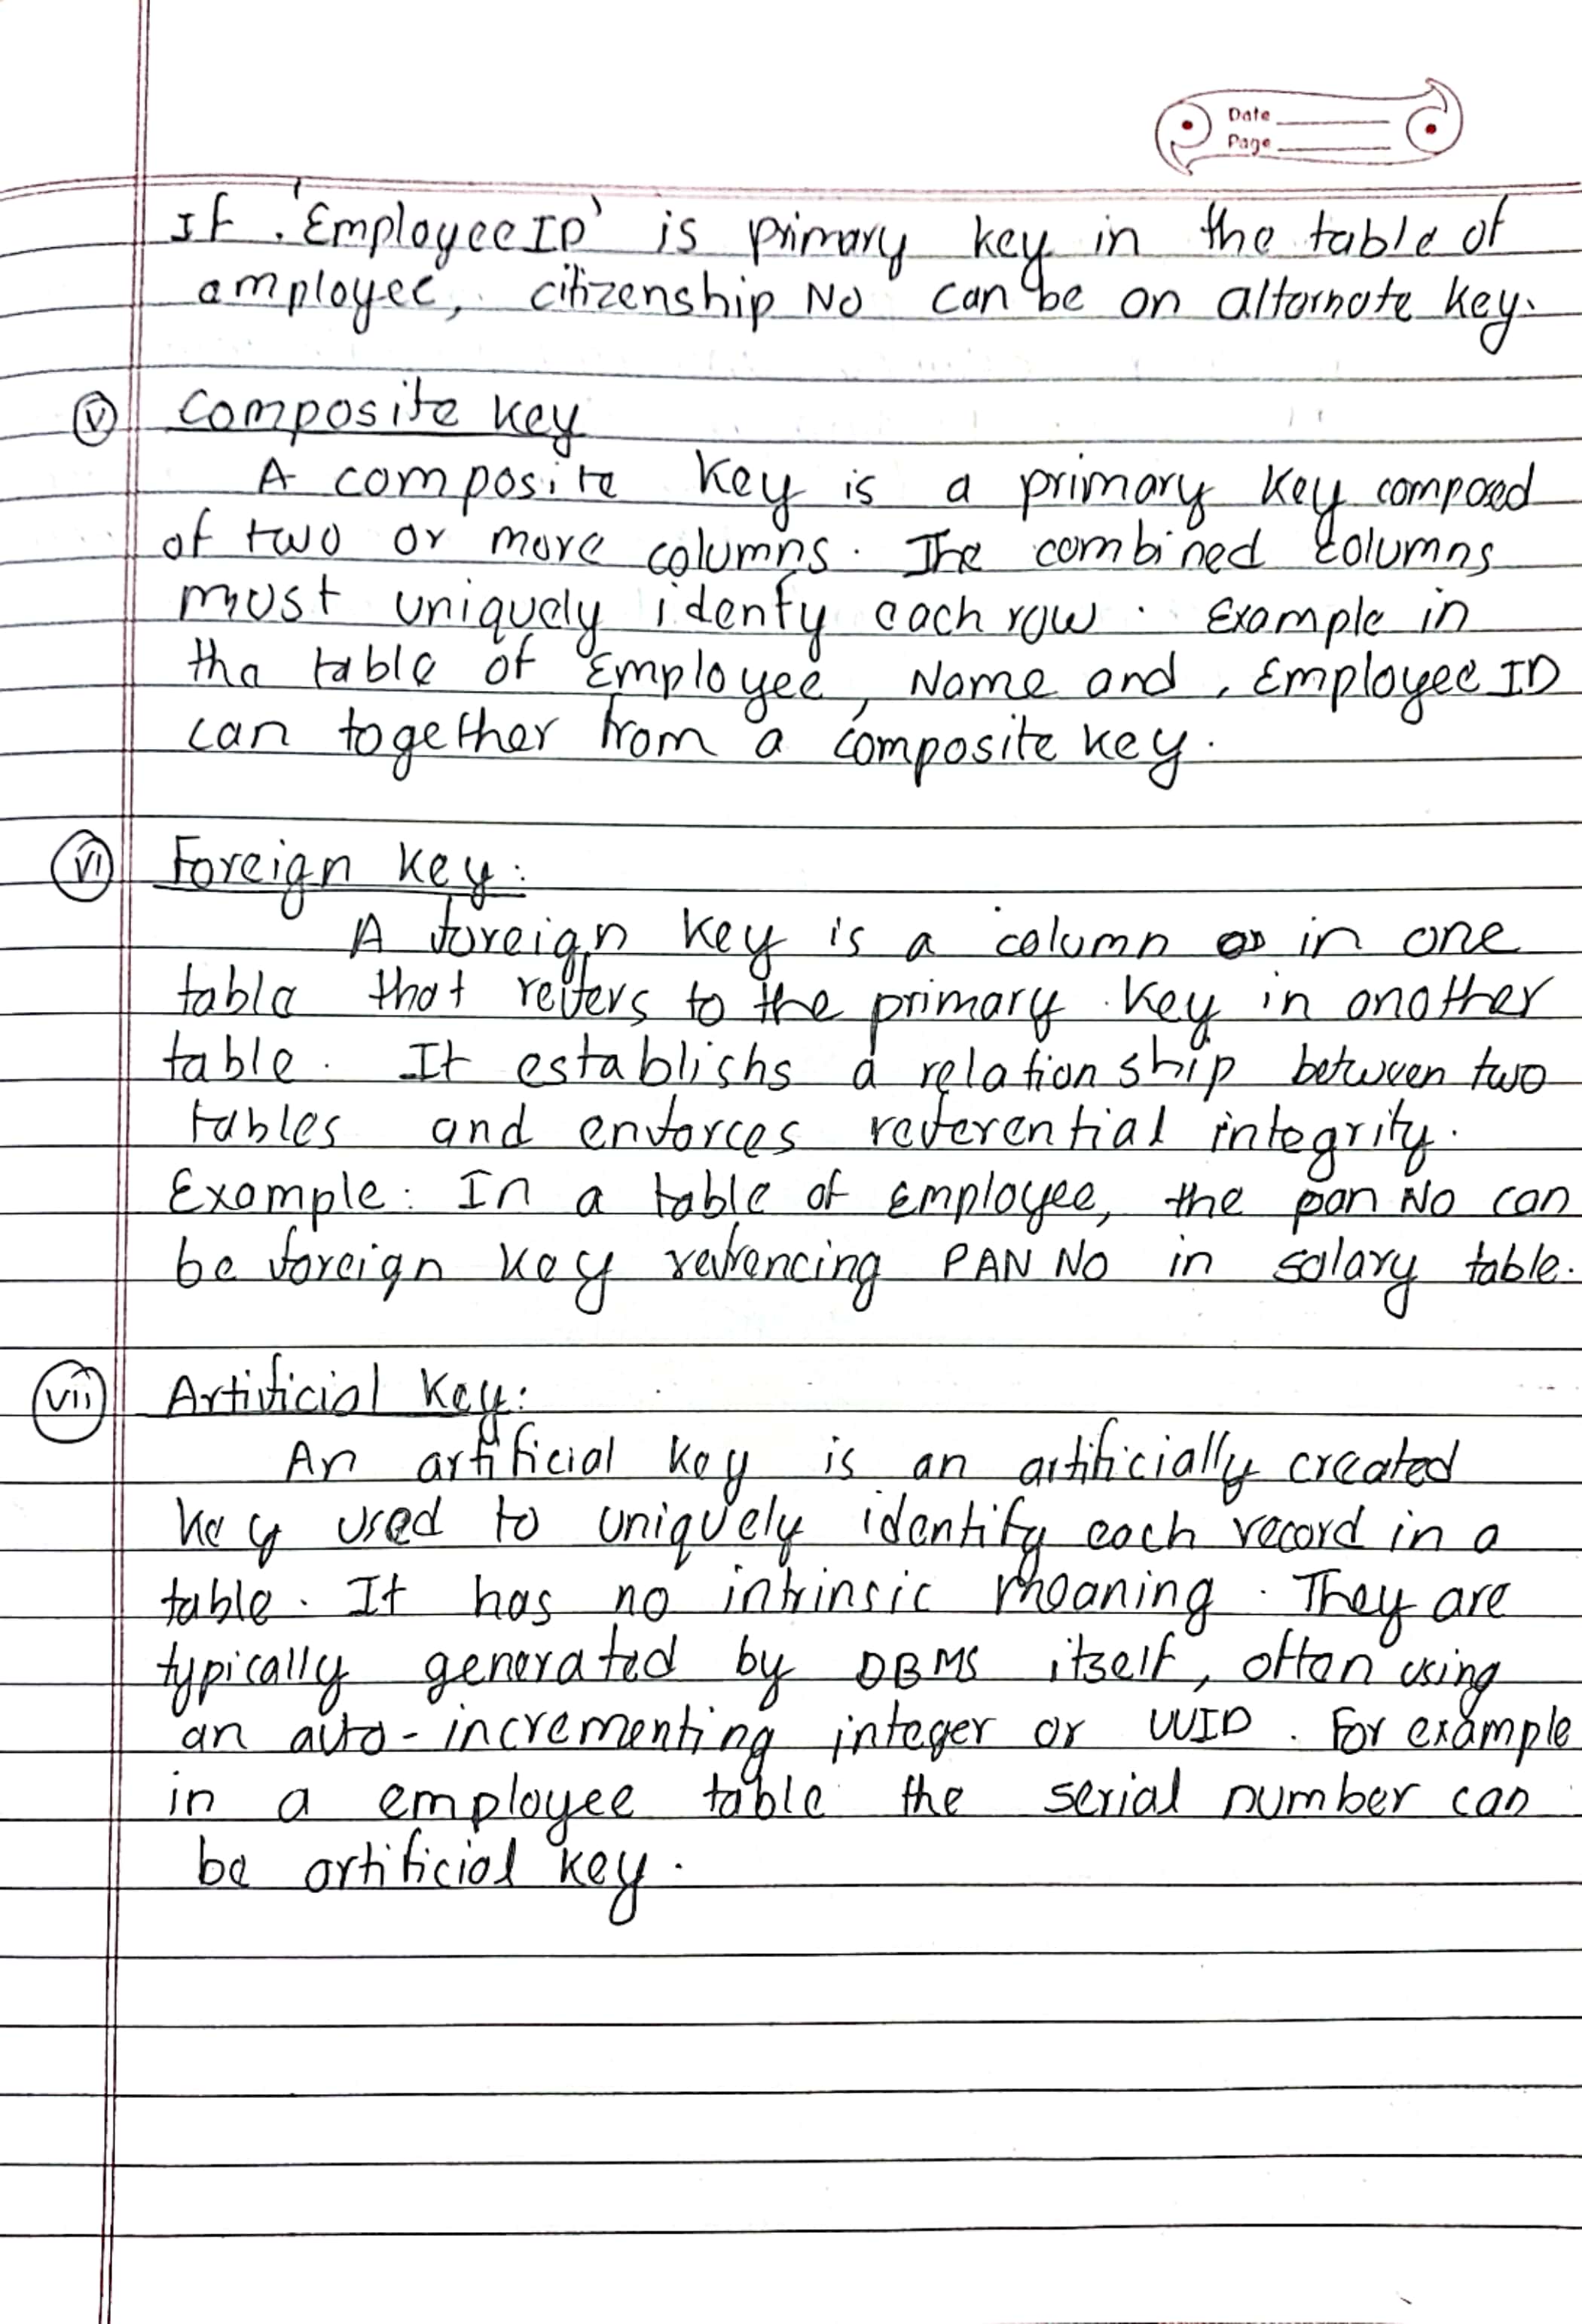 Date
Page
If 'EmployeeID' is primary key in the table of
employee, citizenship No can be an alternate key.
(v) Composite key
A composite key is a primary key composed
of two or more columns. The combined columns
must uniquely identfy each row. Example in
the table of Employee, Name and Employee ID
can together from a composite key.
(vi) Foreign key:
A foreign key is a column in one
table that refers to the primary key in another
table. It establishs a relationship between two
tables and enforces referential integrity.
Example: In a table of employee, the pan No can
be foreign key refrencing PAN NO in salary table.
(vii) Artificial key:
An artificial key is an artificially created
key used to uniquely identify each record in a
table. It has no intrinsic meaning. They are
typically generated by DBMS itself, often using
an auto-incrementing integer or UUID. For example
in a employee table the serial number can
be artificial key.